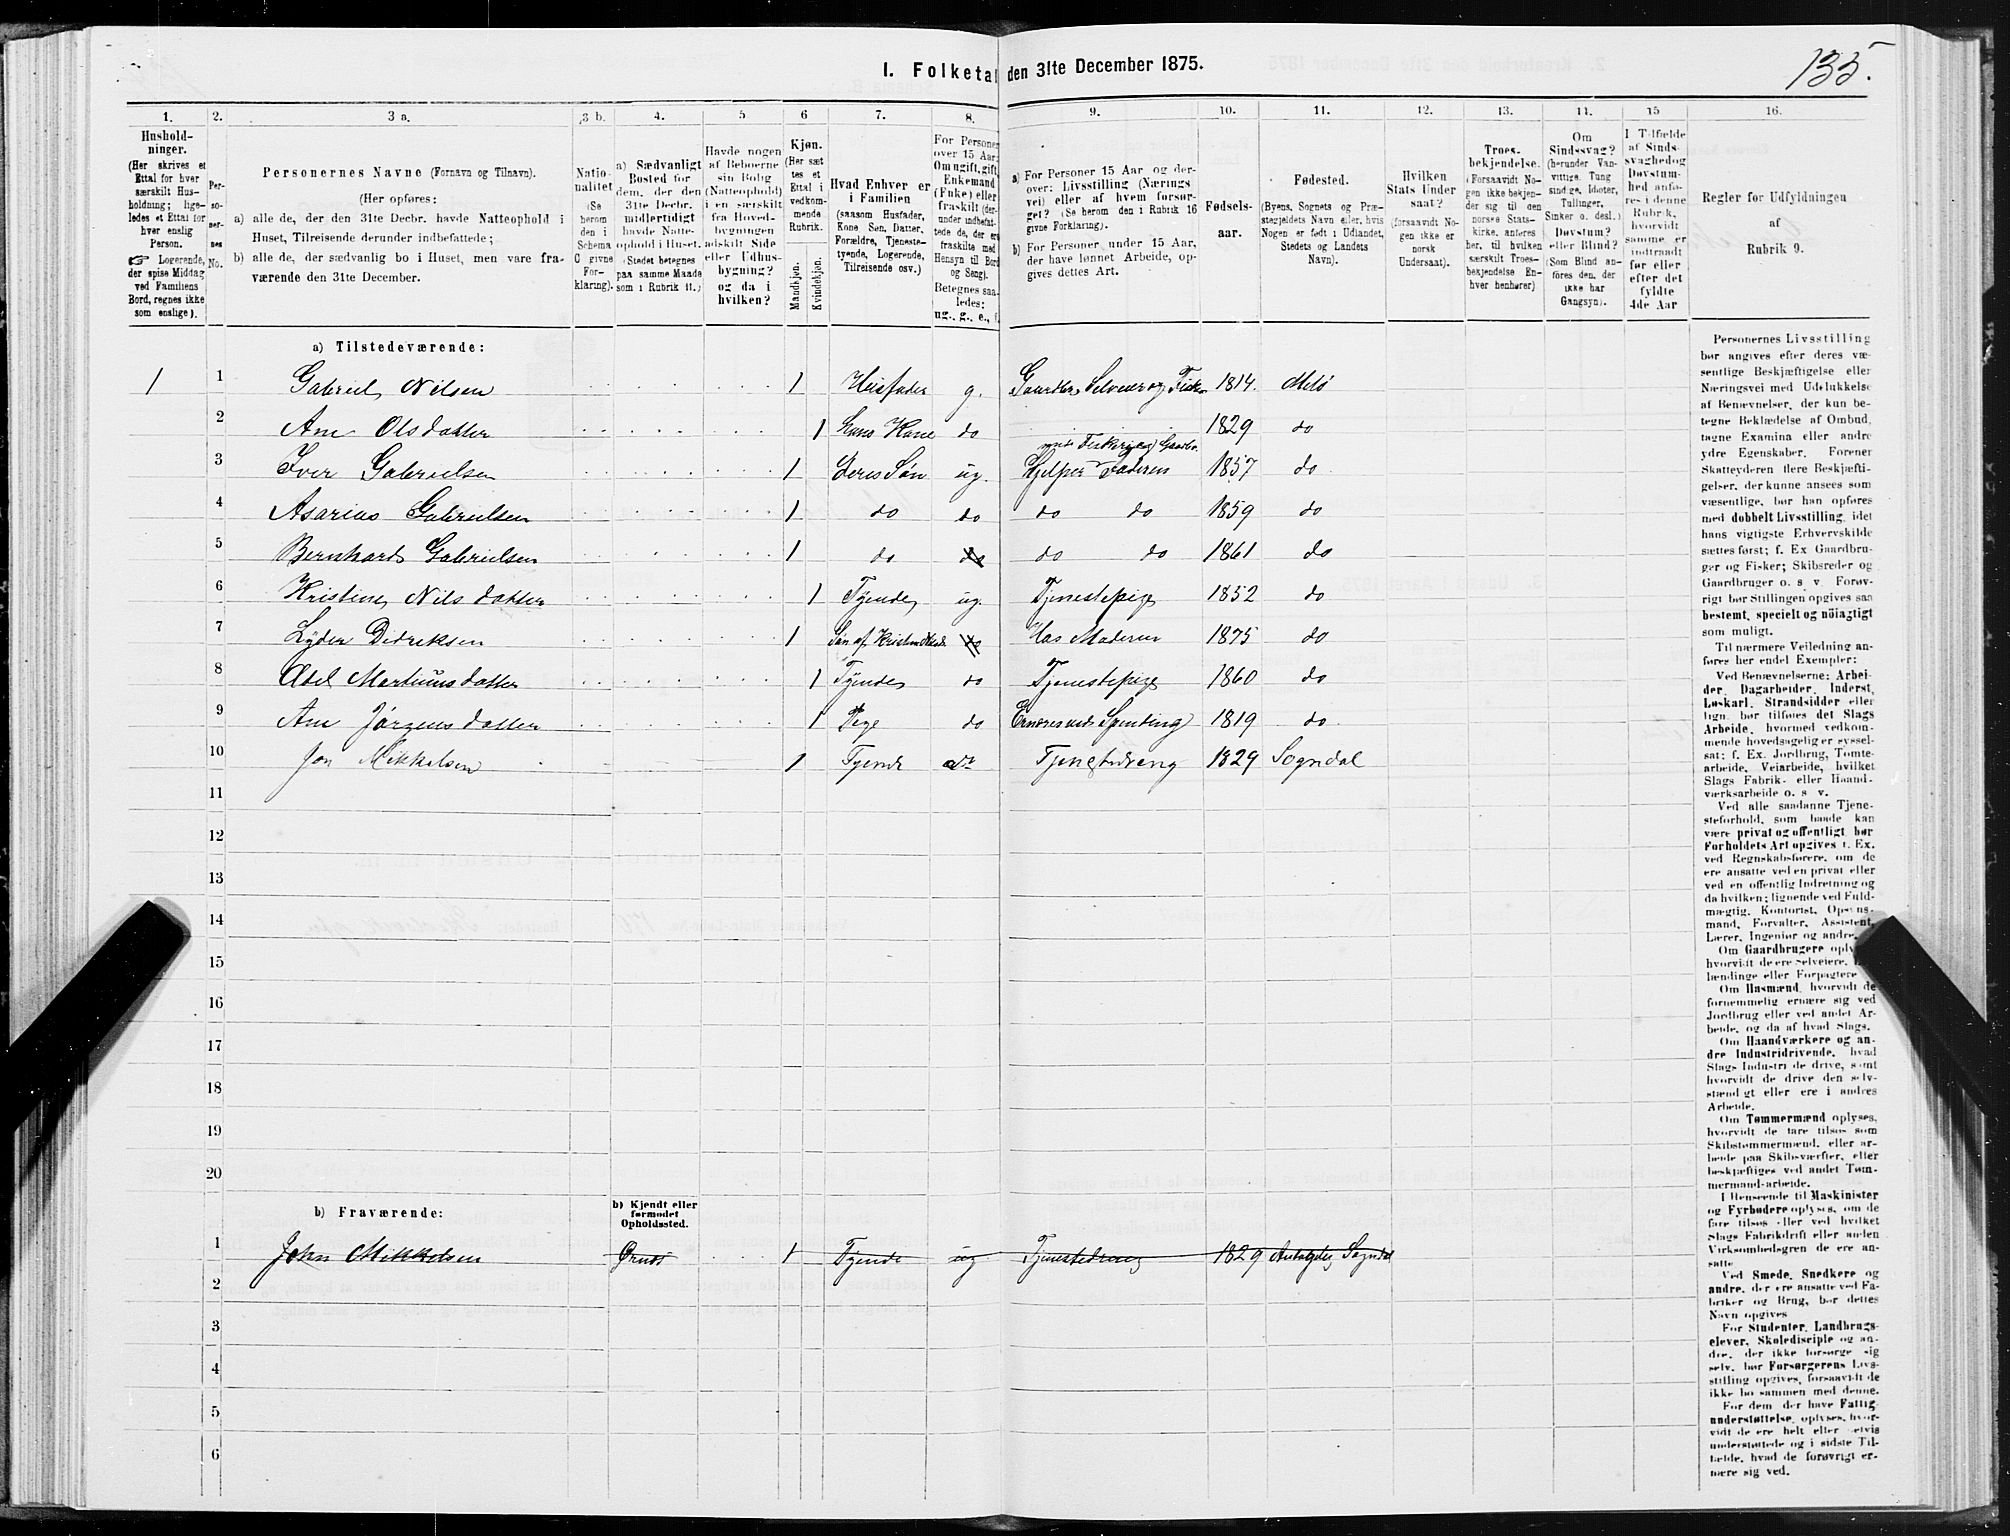 135.
I. Folketal den 31te December 1875.
1. 2. 3 a. 3 b. 4. 5 6 7. 8. 9. 10. 11. 12. 13. 14. 15 16.
Hushold-
ninger.
(Her skrives et
Ettal for hver
særskilt Hus-
holdning; lige-
ledes et Ettal for
hver enslig
Person.
☞ Logerende,
der spise Middag
ved Familiens
Bord, regnes ikke
som enslige).
Per-
so-
ner-
nes
No.
Personernes Navne (Fornavn og Tilnavn).
(Her opføres:
a) alle de, der den 31te Decbr. havde Natteophold i
Huset, Tilreisende derunder indbefattede;
b) alle de, der sædvanlig bo i Huset, men vare fra-
værende den 31te December.
Natio-
nalitet
(Se
herom
den i
Schema
C givne
For-
klaring).
a) Sædvanligt
Bosted for
dem, der den
31te Decbr.
midlertidigt
havde Natte-
ophold i Huset.
(Stedet betegnes
paa samme Maade
som i Rubrik 11.)
Havde nogen
af Beboerne
sin Bolig
(Natteophold)
i en særskilt
fra Hoved-
bygningen
adskilt Side
eller Udhus-
bygning?
og da i
hvilken?
Kjøn.
(Her sæt-
tes et
Ettal i
vedkom-
mende
Rubrik.
Mandkjøn.
Kvindekjøn.
Hvad Enhver er
i Familien
(saasom Husfader,
Kone Søn, Datter,
Forældre, Tjeneste-
tyende, Logerende,
Tilreisende osv.)
For Personer
over 15 Aar:
Om ugift, gift,
Enkemand
(Enke) eller
fraskilt (der-
under indbefat-
tede de, der ere
fraskilte med
Hensyn til Bord
og Seng).
Betegnes saa-
ledes:
ug., g., e., f.
a) For Personer 15 Aar og der-
over: Livsstilling (Nærings
vei) eller af hvem forsør-
get? (Se herom den i Rubrik 16
givne Forklaring).
b) For Personer under 15 Aar,
der have lønnet Arbeide, op-
gives dettes Art.
Fødsels-
aar.
Fødested.
(Byens, Sognets og Præ-
stegjeldets Navn eller, hvis
Nogen er født i Udlandet,
Stedets og Landets
Navn).
Hvilken
Stats Under
saat?
(forsaavidt No-
gen ikke er
norsk
Undersaat).
Troes-
bekjendelse.
(Forsaavidt No-
gen ikke bekjen-
der sig til den
norske Stats-
kirke, anføres
her, til hvilken
særskilt Troes-
bekjendelse En-
hver henhører)
Om
Sindssvag?
(herunder Van-
vittige, Tung
sindige, Idioter,
Tullinger,
Sinker o. desl.)
Døvstum?
eller Blind?
(Som Blind an-
føres den, der
ikke har
Gangsyn).
I Tilfælde
af Sinds-
svaghed og
Døvstum-
hed anfø-
res i denne
Rubrik,
hvorvidt
samme er
indtraadt
før eller
efter det
fyldte
4de Aar
Regler for Udfyldningen
af
Rubrik 9.
a) Tilstedeværende:
1 1 Gabriel Nilsen 1 Husfader g. Gaardbr. Selveier og Fisker 1814. Melø
2 Ane Olsdatter 1 Hans Kone do 1829 do
3 Iver Gabrielsen 1 Deres Søn ug. Hjelper Faderen 1857 do
4 Asarias Gabrielsen 1 do do do do 1859 do
5 Bernhard Gabrielsen 1 do do do do 1861 do
6 Kristine Nilsdatter 1 Tyende ug. Tjenestepige 1852 do
7 Lyder Didriksen 1 Søn af Kristine do Hos Moderen 1875 do
8 Martinusdatter 1 Tyende do Tjenestepige 1860 do
9 Ane Jørgensdatter 1 Pige do Spinding 1819 do
10 Jon Mikkelsen 1 Tyende do Tjenstedreng 1829 Sogndal
11
12
13
14
15
16
17
18
19
20
b) Fraværende:
b) Kjendt eller
formodet
Opholdssted.
1 John Mikkelsen 1 Tyende ug Tjenestedreng 1829 Sogndal
2
3
4
5
6
Personernes Livsstilling
bør angives efter deres væ-
sentlige Beskjæftigelse eller
Næringsvei med Udelukkelse
af Benævnelser, der kun be-
tegne Beklædelse af Ombud,
tagne Examina eller andre
ydre Egenskaber. Forener
Skatteyderen flere Beskjæfti-
gelser, der kunne ansees som
væsentlige, bør han opføres
med dobbelt Livsstilling, idet
hans vigtigste Erhvervskilde
sættes først; f. Ex Gaardbru-
ger og Fisker; Skibsreder og
Gaardbruger o. s v. Forøv-
rigt bør Stillingen opgives saa
bestemt, specielt og nöiagtigt
som muligt.
Til nærmere Veiledning an-
føres her endel Exempler:
Ved Benævnelserne: Arbei-
der, Dagarbeider, Inderst,
Løskarl, Strandsidder eller
lign. bør tilføies det Slags
Arbeide, hvormed vedkom-
mende hovedsagelig er syssel-
sat; f. Ex. Jordbrug, Tomte-
arbeide, Veiarbeide, hvilket
Slags Fabrik- eller Haand-
værksarbeide o. s v.
Ved alle saadanne Tjene-
steforhold, som baade kan
være privat og offentligt, bør
Forholdets Art opgives f. Ex.
ved Regnskabsførere, om de
ere ansatte ved en privat eller
ved en offentlig Indretning og
da hvilken; lignende ved Fuld-
mægtig, Kontorist, Opsyns-
mand, Forvalter, Assistent,
Lærer, Ingeniør og andre.
Om Gaardbrugere oply-
hvorvidt de ere selveiere,
lændinge eller Forpagtere
Om Husmænd, hvorvidt de
fornemmelig ernære sig ved
Jordbrug eller ved andet Ar-
beide, og da af hvad Slags.
Om Haandværkere og an-
dre Industridrivende, hvad
Slags Industri de drive, samt
hvorvidt de drive den selv-
stændigt eller ere i andres
Arbeide.
Om Tømmermænd oplyses,
hvorvidt de fare tilsøs som
Skibstømmermænd, eller ar-
beide paa Skibsværfter, eller
beskjæftiges ved andet Tøm-
mermand-arbeide.
I Henseende til Maskinister
og Fyrbødere oplyses, om de
fare tilsøs eller ved hvilket
Slags Fabrikdrift eller anden
Virksomhedsgren de ere an-
satte
Ved Smede, Snedkere og
andre, der ere ansatte ved Fa-
briker og Brug, bør dettes
Navn opgives
For Studenter, Landbrugs-
elever, Skoledisciple og an-
dre, der ikke forsørge sig
selv, bør Forsørgerens Livs-
stilling opgives, forsaavidt de
ikke bo sammen med denne.
For dem, der have Fattig-
understøttelse, oplyses, hvor-
vidt de ere helt eller delvis
understøttede og i sidste Til-
fælde, hvad de forøvrigt er-
nære sig ved.